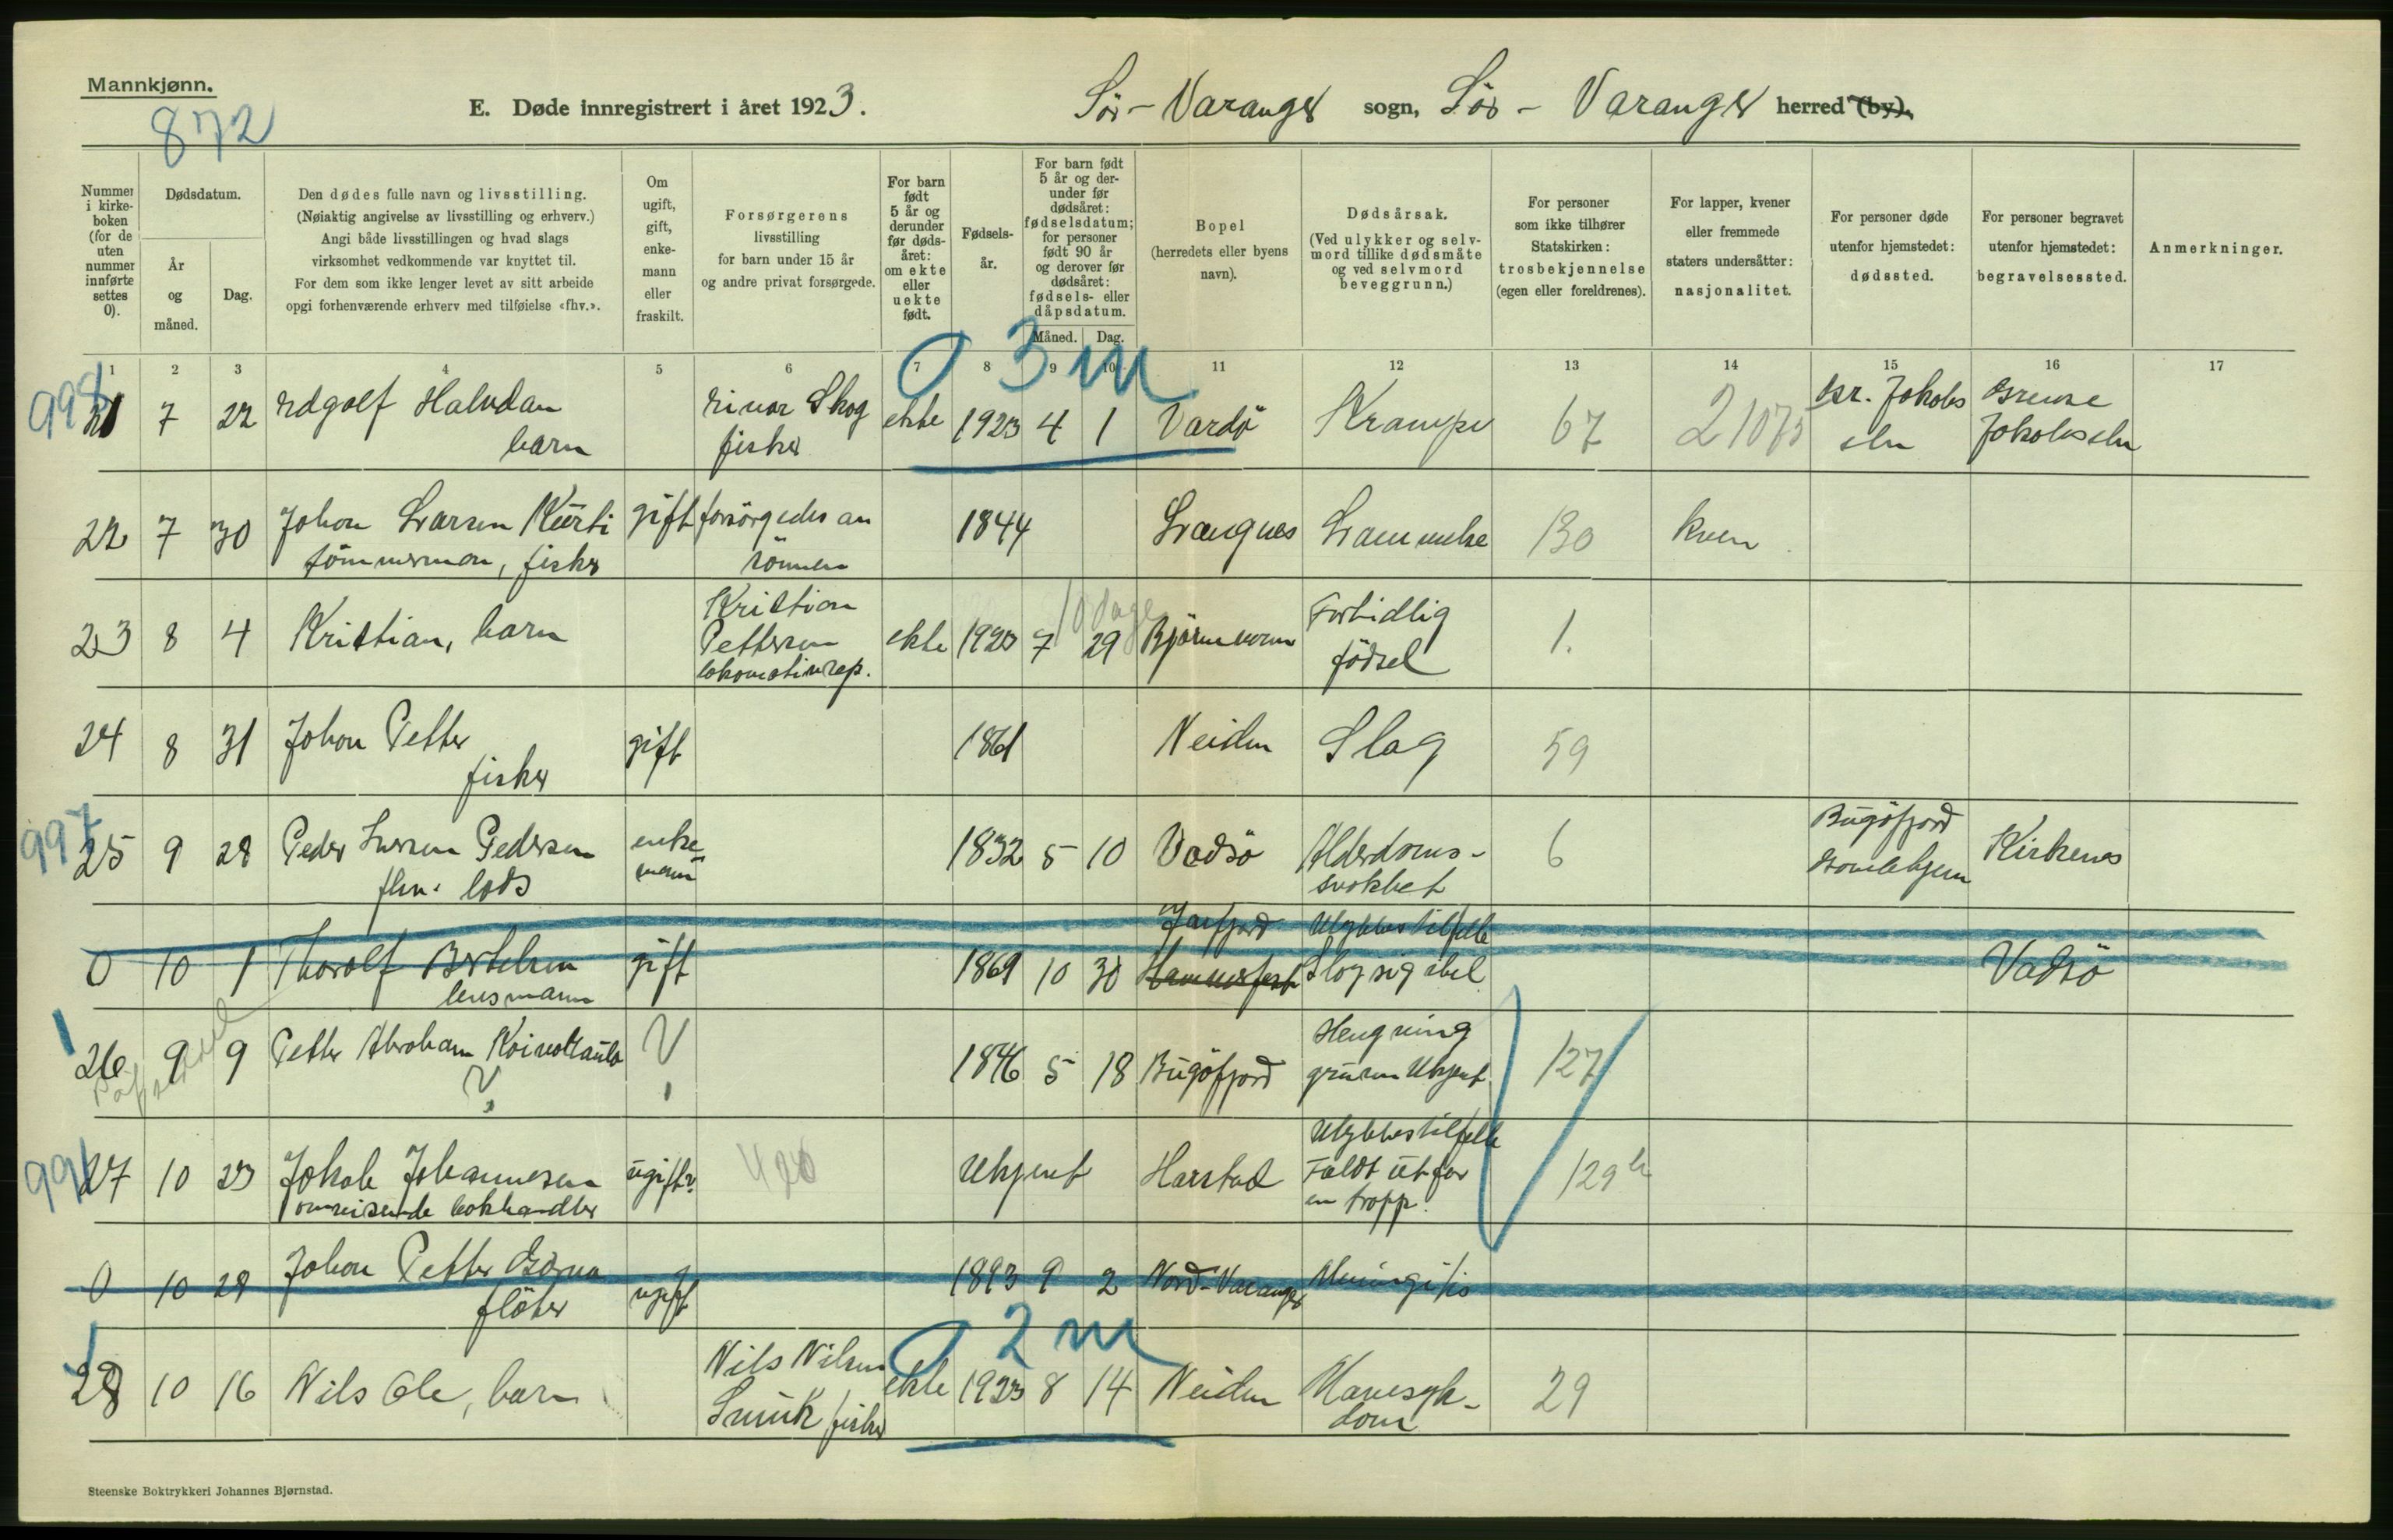 Mannkjønn.
872
E. Døde innregistrert i året 1923.
Sör-Varanger sogn, Sör-Varanger herred (by).
Nummer i kirkeboken (for de uten nummer innførte settes 0).
Dødsdatum.
År og måned.
Dag.
Den dødes fulle navn og livsstilling.
(Nøiaktig angivelse av livsstilling og erhverv.)
Angi både livsstillingen og hvad slags
virksomhet vedkommende var knyttet til.
For dem som ikke lenger levet av sitt arbeide
opgi forhenværende erhverv med tilføielse «fhv.».
Om ugift, gift, enkemann eller fraskilt.
Forsørgerens
livsstilling
for barn under 15 år
og andre privat forsørgede.
For barn født 5 år og derunder før dødsåret: om ekte eller uekte født.
Fødselsår.
For barn født 5 år og derunder før dødsåret: fødselsdatum; for personer født 90 år og derover før dødsåret: fødsels- eller dåpsdatum.
Måned. Dag.
Bopel
(herredets eller byens
navn).
Dødsårsak.
(Ved ulykker og selvmord tillike dødsmåte og ved selvmord beveggrunn.)
For personer
som ikke tilhører
Statskirken:
trosbekjennelse
(egen eller foreldrenes).
For lapper, kvener
eller fremmede
staters undersåtter:
nasjonalitet.
For personer døde
utenfor hjemstedet:
dødssted.
For personer begravet
utenfor hjemstedet:
begravelsessted.
Anmerkninger.
1 2 3 4 5 6 7 8 9 10 11 12 13 14 15 16 17
0 3 m
998
21 7 22 Edgolf Halvdan barn Einar Skog fisker ekte 1923 4 1 Vardö Krampe 67 21075 Gr. Jakobs elv Grense Jakobselv
22 7 30 Johan Larsen Kürti tömmerman, fisker gift forsörgedes av sönnen 1844 Langnes Lammelse 130 kven
10 dage
23 8 4 Kristian, barn Kristian Pettersen lokomotivrep. ekte 1923 7 29 Björnevann Fortidlig födsel 1.
24 8 31 Johan Petter fisker gift 1861 Neiden Slag 59
997
25 9 28 Peder Iversen Pedersen fhv. lods enkemann 1832 5 10 Vadsö Alderdomssvakhet 6 Bugöfjord Gamlehjem Kirkenes
0 10 1 Thorolf Bertelsen lensmann gift 1869 10 30 Jarfjord Hammerfest Ulykkestilfelle Slog sig ihel Vadsö
26 9 9 Petter Abraham ? ? 1846 5 18 Bugöfjord Hengning grunnen Ukjent 127
27 10 23 Jakob Johannesen omreisende bokhandler ugift? 420 Ukjent Harstad Ulykkestilfelle Faldt utfor en trapp. 129 b
0 10 28 Johan Petter flöter ugift 1893 9 2 Nord-Varanger Meningitis
0 2 m
28 10 16 Nils Ole, barn Nils Nilsen fisker ekte 1923 8 14 Neiden Mavesykdom 29
Steenske Boktrykkeri Johannes Bjørnstad.